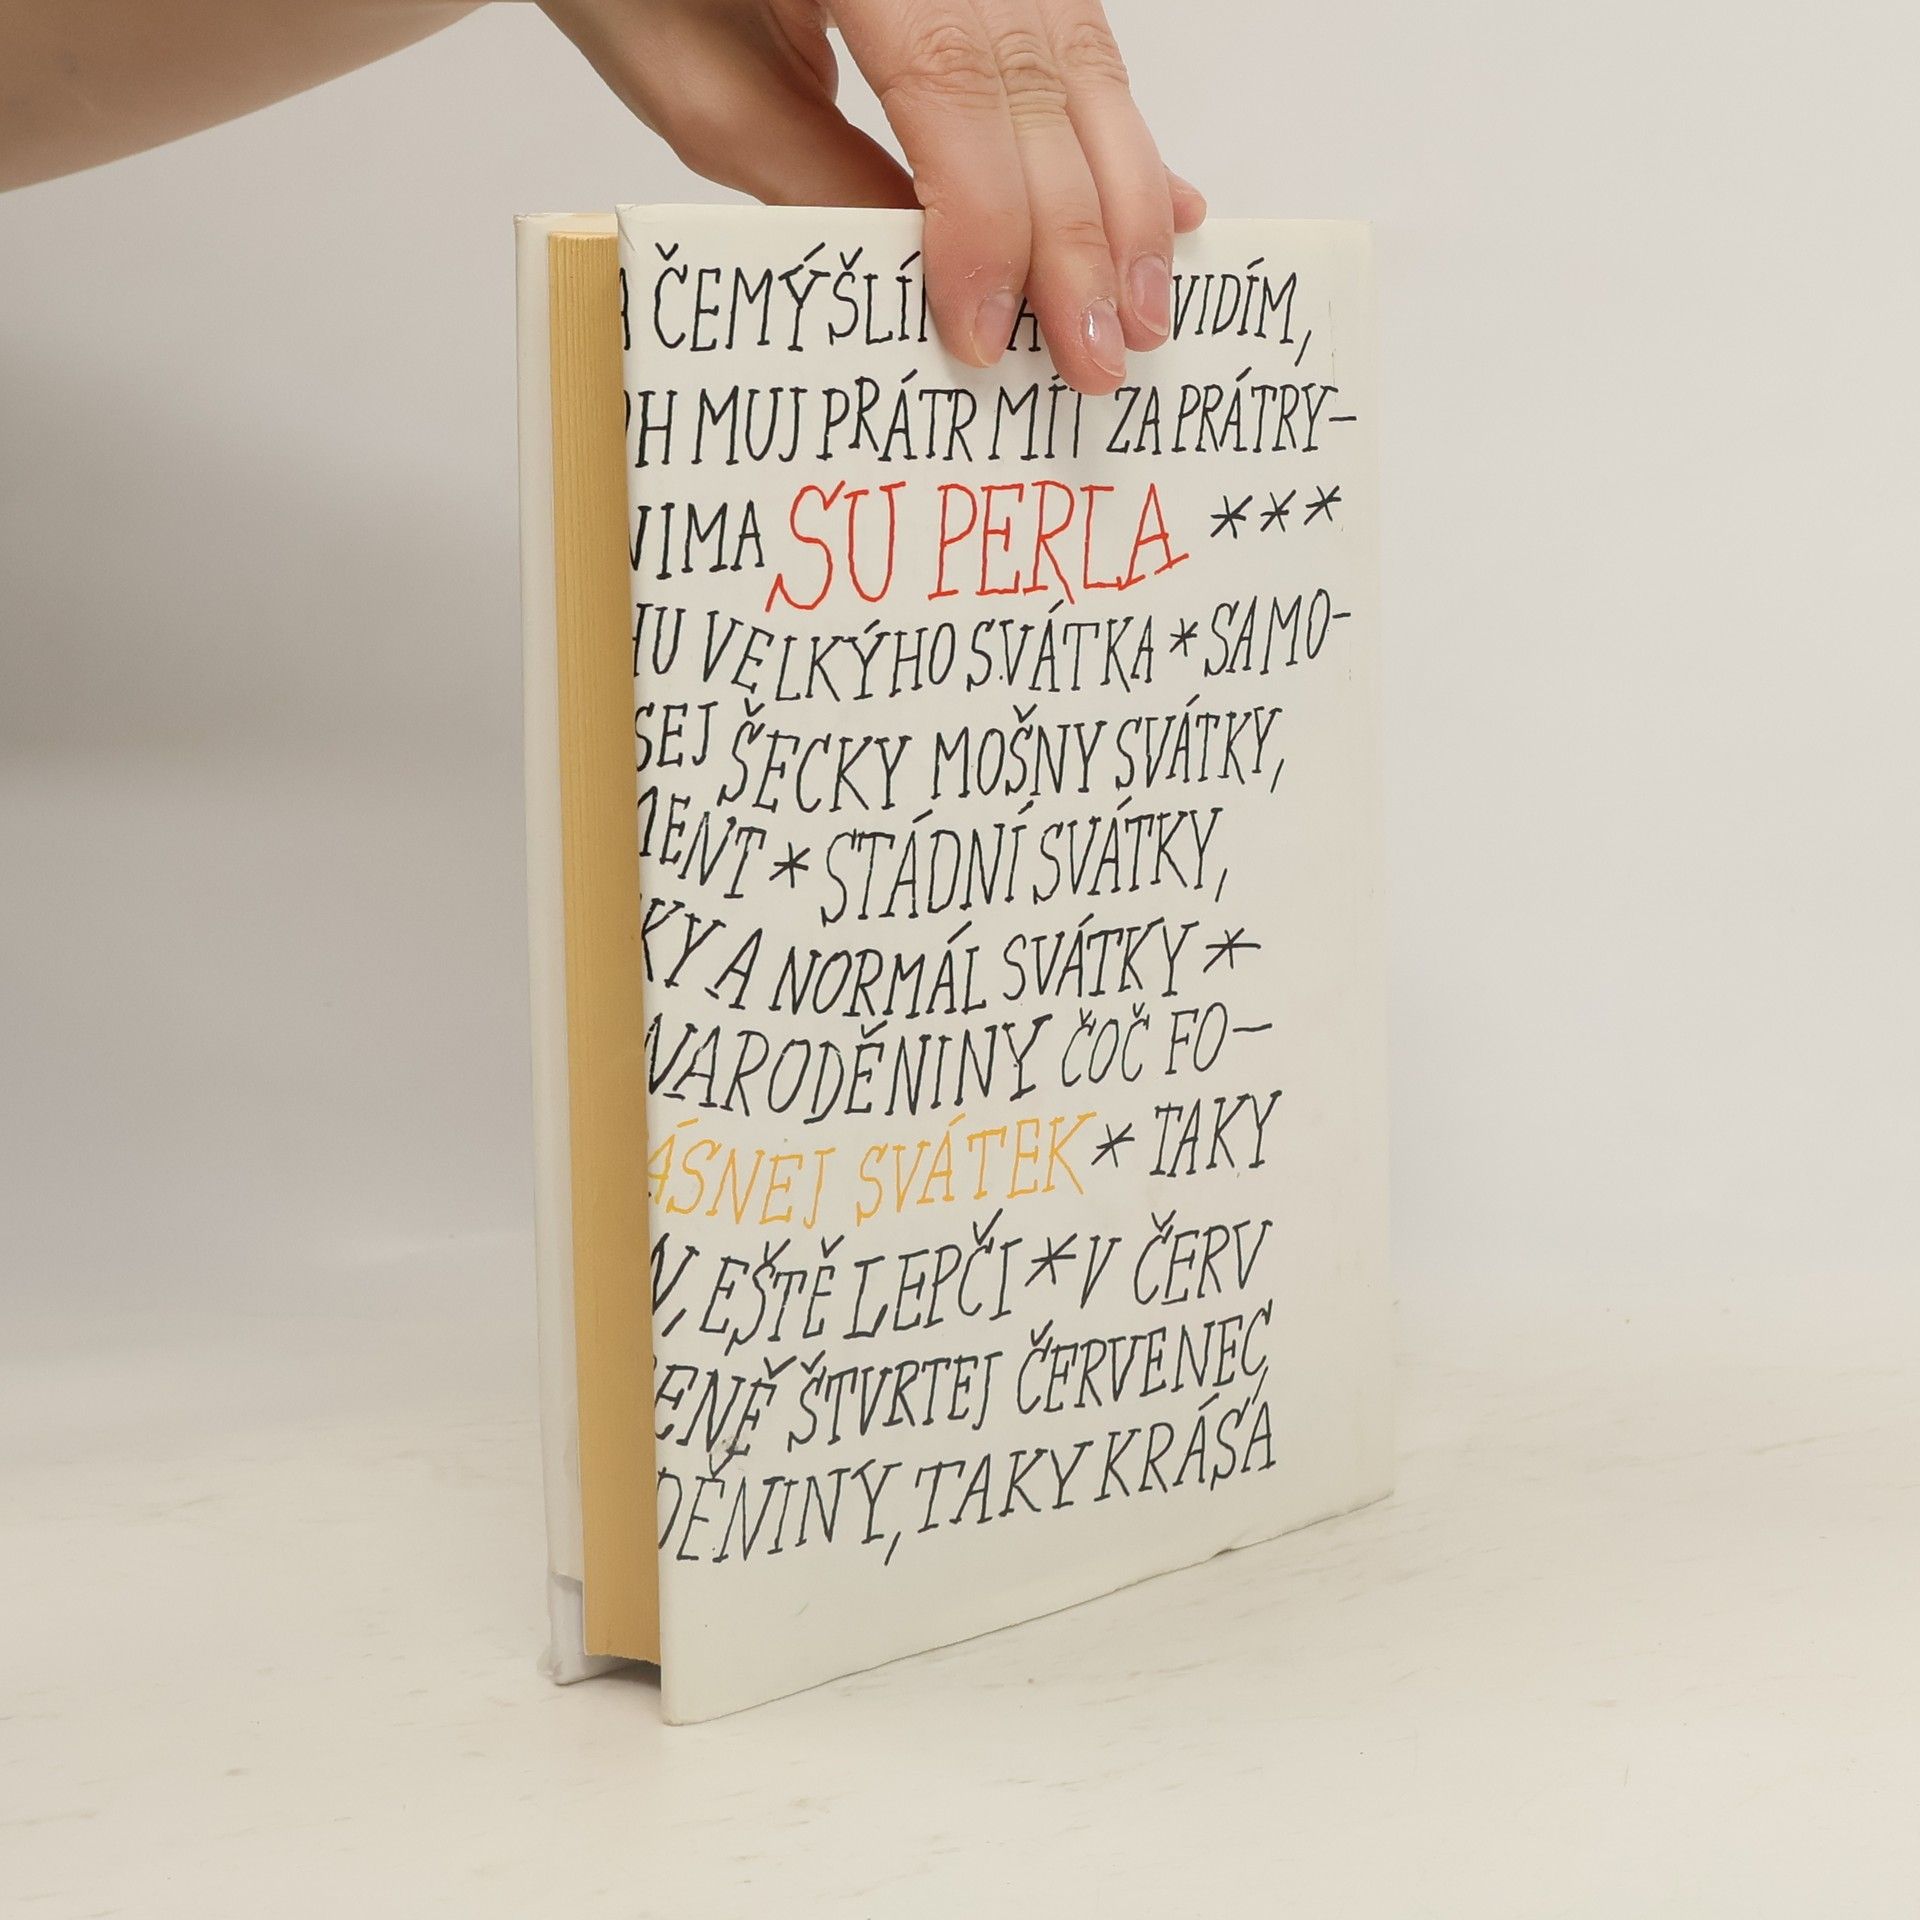 ČEMÝŠLÍ VIDÍM,
MUJ PRÁTR MÍT ZA PRÁTRY-
SU PERLA ***
VELKÝHO SVÁTKA * SAMO-
ŠECKY MOŠNY SVÁTKY,
* STÁDNÍ SVÁTKY,
KY A NORMÁL SVÁTKY *
NARODĚNINY ČOČ FO-
ÁSNEJ SVÁTEK * TAKY
N, EŠTĚ LEPČI * V ČERV
ENĚ ŠTVRTEJ ČERVENEC,
DĚNINY, TAKY KRÁSÁ